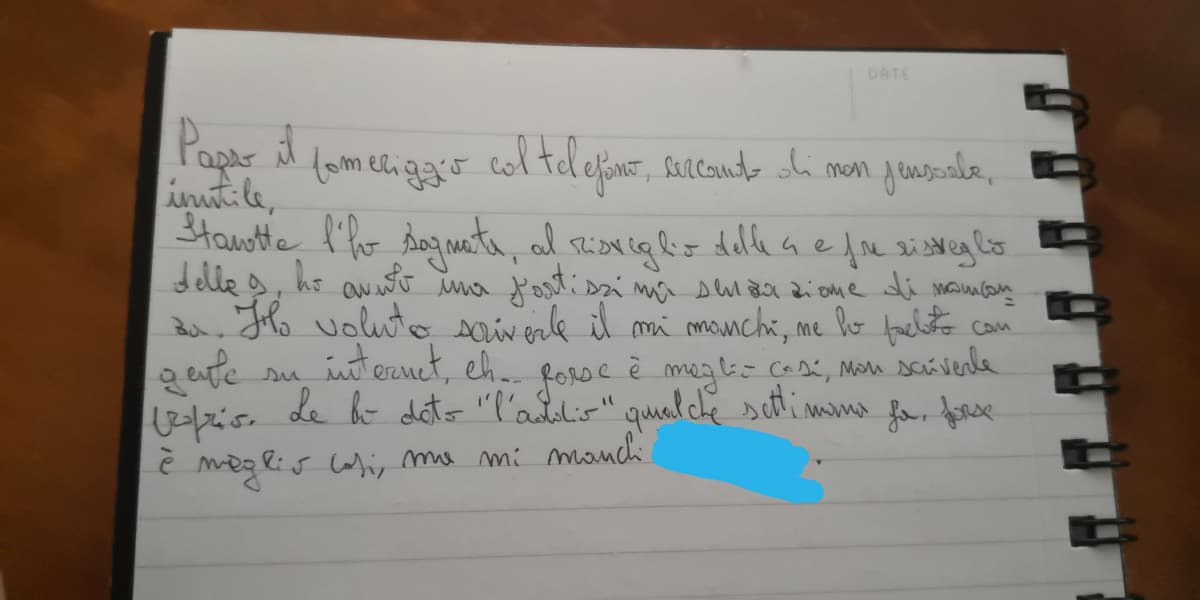 DATE
Passo il pomeriggio col telefono, cercando di non pensarle,
inutile.
Stanotte l'ho sognata, al risveglio delle 4 e fre risveglio
delle 9, ho avuto una fortissima sensazione di mancan=
za. Ho voluto scriverle il mi manchi, ne ho parlato con
gente su internet, eh... forse è meglio così, non scriverle
proprio. Le ho dato "l'addio" qualche settimana fa, forse
è meglio così, ma mi manchi .